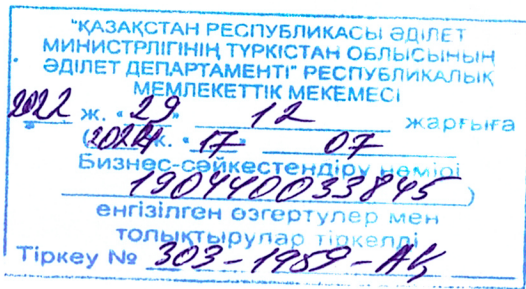 "ҚАЗАҚСТАН РЕСПУБЛИКАСЫ ӘДІЛЕТ
МИНИСТРЛІГІНІҢ ТҮРКІСТАН ОБЛЫСЫНЫҢ
ӘДІЛЕТ ДЕПАРТАМЕНТІ" РЕСПУБЛИКАЛЫҚ
МЕМЛЕКЕТТІК МЕКЕМЕСІ
2022 ж. "29" 12 жарғыға
(2024 ж. "17" 07
Бизнес-сәйкестендіру нөмірі
190440033845)
енгізілген өзгертулер мен
толықтырулар тіркелді
Тіркеу № 303-1959-АҚ